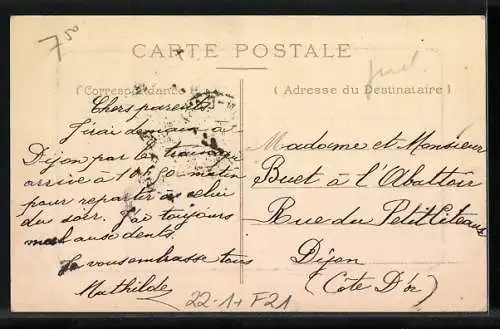 750
CARTE POSTALE
(Correspondance
( Adresse du Destinataire )
Chers parents.
J'irai demain a
Dijon par le
arrive à 10h50 matin
pour repartir à celui
du soir. J'ai toujours
mal aux dents.
Je vous embrasse tous
Mathilde
Madame et Monsieur
Buet à l'Abattoir
Rue du Petit Citeaux
Dijon
(Cote D'or)
22-1+ F21